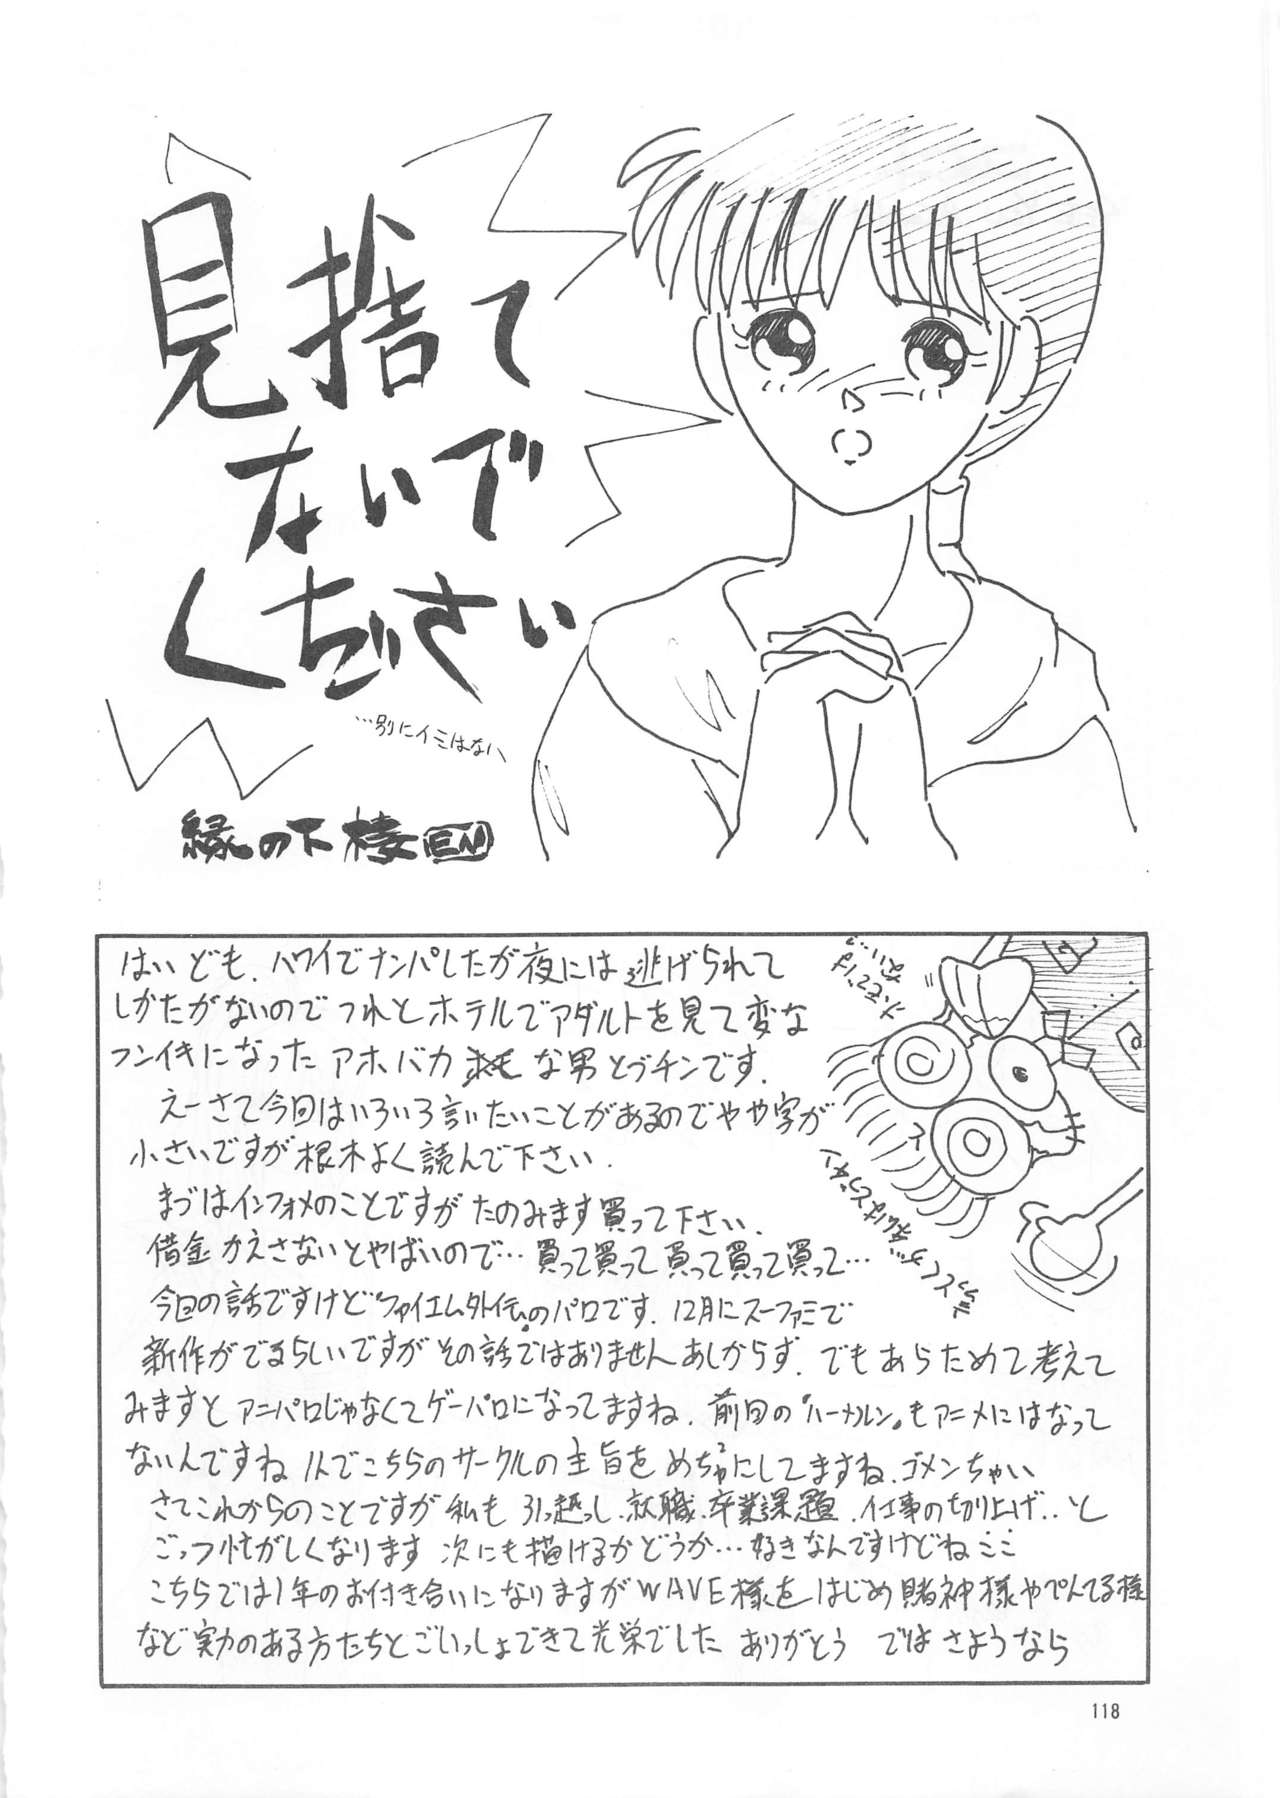 見捨て
ないで
ください
…別にイミはない
縁の下棲EN
はい ども、ハワイでナンパしたが夜には逃げられて
しかたがないので つれとホテルでアダルトを見て変な
フンイキになった アホバカ な男 とづチンです。
えーさて今回はいろいろ言いたいことがあるのでやや字が
小さいですが根木よく読んで下さい.
まづはインフォメのことですが たのみます買って下さい.
借金かえさないとやばいので…買って買って買って買って買って…
今回の話ですけど のパロです. 12月にスーファミで
新作がでるらしいですが その話ではありません あしからず. でも あらためて考えて
みますと アニパロじゃなくてゲーパロになってますね. 前回の"ハーメルン"も アニメにはなって
ないんですね んでこちらのサークルの主旨を めちゅ2にしてますね. ゴメンちゃい
さてこれからのことですが 私も 引っ越し. 就職. 卒業課題. 仕事の切り上げ.. と
ごっつ忙がしくなります 次にも描けるかどうか… 好きなんですけどね
こちらでは1年のお付き合いになりますが WAVE様をはじめ 賭神様やぺんてる様
など 実力のある方たちとごいっしょできて光栄でした ありがとう ではさようなら
118